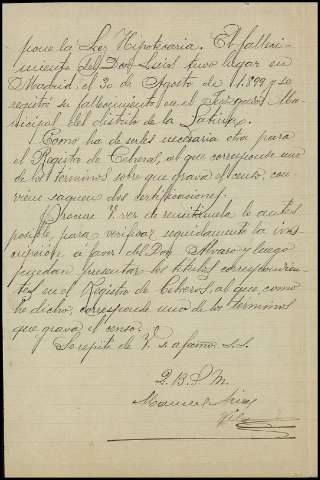 pone la Ley Hipotecaria. El falleci-
miento del Don Luis tuvo lugar en
Madrid el 30 de Agosto de 1.899 y se
registró su fallecimiento en el Juzgado Mu-
nicipal del distrito de la Latina.
Como ha de serles necesaria otra para
el Registro de Cebreros, al que corresponde uno
de los terminos sobre que grava el censo, con
viene saquen dos certificaciones.
Procure V. ver de remitirmela lo antes
posible, para verificar seguidamente la ins-
cripción á favor del Don Alvaro y luego
puedan presentar los titulos correspondien-
tes en el Registro de Cebreros, al que, como
he dicho, corresponde uno de los terminos
que grava el censo.
Se repite de V. s. afectmo. s.s.
Q.B.S.M.
Manuel